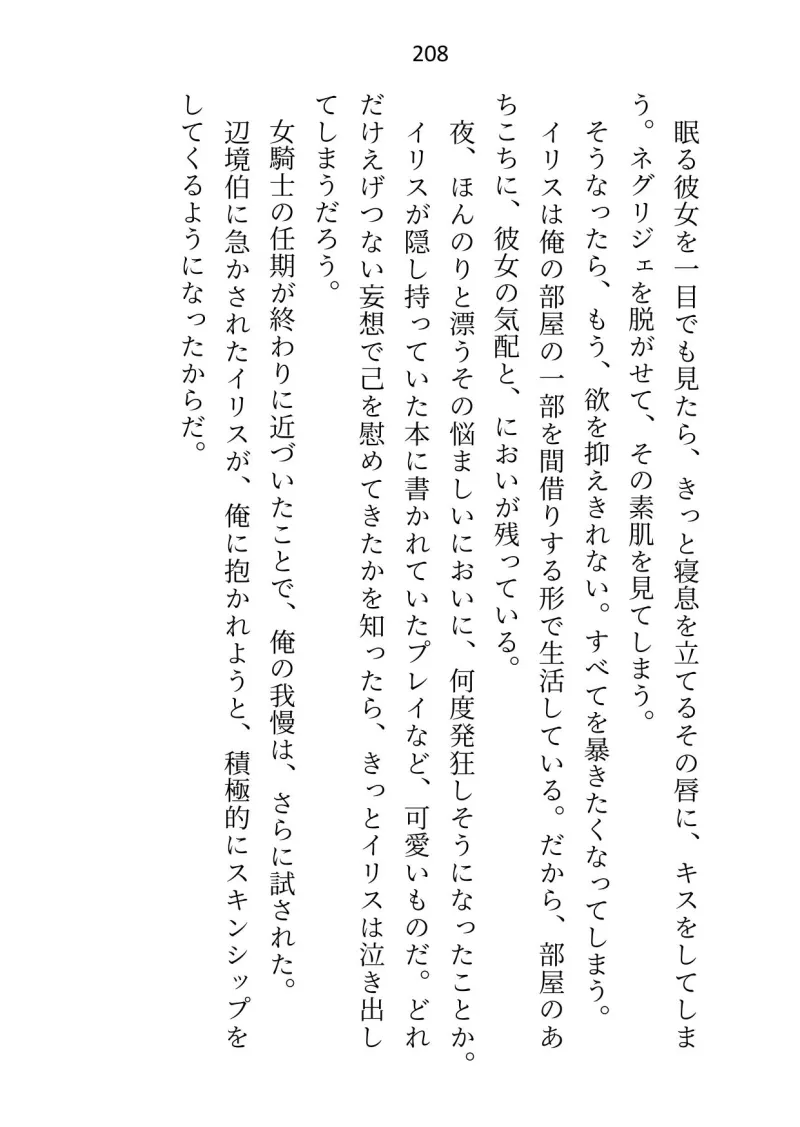 208
眠る彼女を一目でも見たら、きっと寝息を立てるその唇に、キスをしてしま
う。ネグリジェを脱がせて、その素肌を見てしまう。
そうなったら、もう、欲を抑えきれない。すべてを暴きたくなってしまう。
イリスは俺の部屋の一部を間借りする形で生活している。だから、部屋のあ
ちこちに、彼女の気配と、においが残っている。
夜、ほんのりと漂うその悩ましいにおいに、何度発狂しそうになったことか。
イリスが隠し持っていた本に書かれていたプレイなど、可愛いものだ。どれ
だけえげつない妄想で己を慰めてきたかを知ったら、きっとイリスは泣き出し
てしまうだろう。
女騎士の任期が終わりに近づいたことで、俺の我慢は、さらに試された。
辺境伯に急かされたイリスが、俺に抱かれようと、積極的にスキンシップを
してくるようになったからだ。